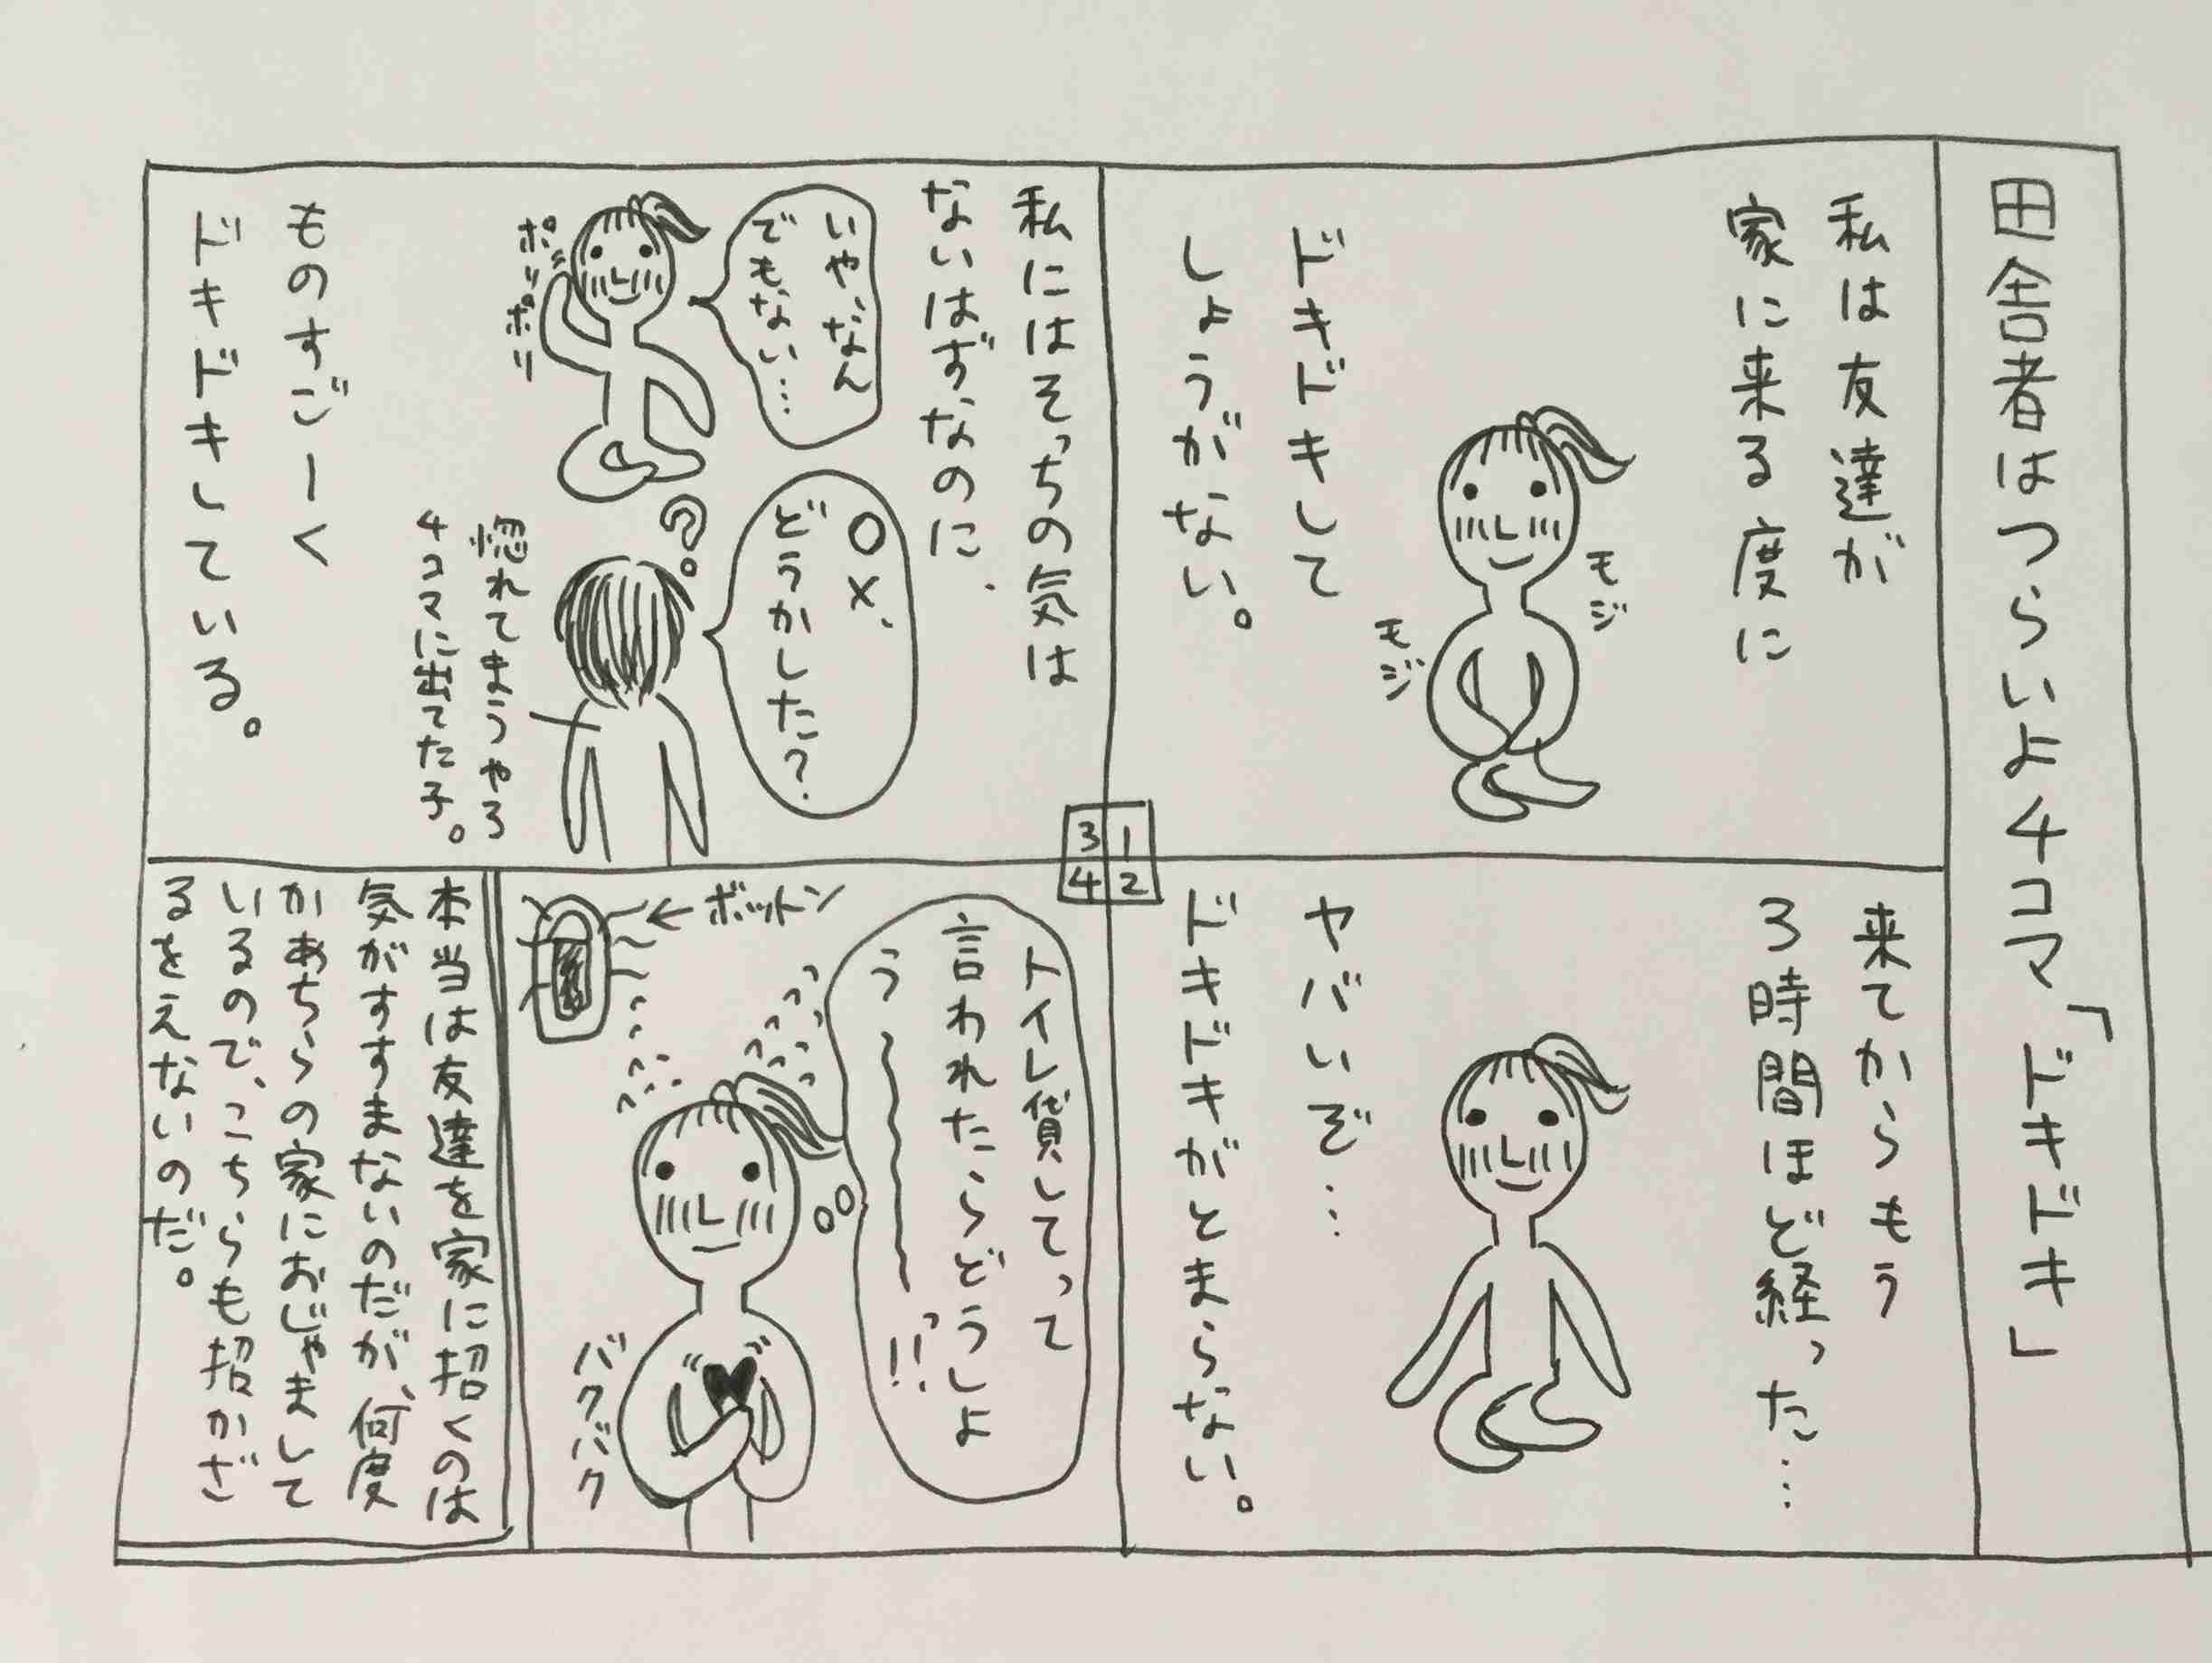 田舎者はつらいよ4コマ「ドキドキ」
私は友達が
家に来る度に
モジ
モジ
ドキドキして
しょうがない。
来てからもう
3時間ほど経った…
ヤバいぞ…
ドキドキがとまらない。
私にはそっちの気は
ないはずなのに、
○×、
どうかした？
いやなん
でもない…
ポリ
ポリ
惚れてまうやろ
4コマに出てた子。
ものすごーく
ドキドキしている。
3 1
4 2
トイレ貸してって
言われたらどうしよ
う〜〜〜っ!!
←ボットン
バクバク
本当は友達を家に招くのは
気がすすまないのだが、何度
かあちらの家におじゃまして
いるので、こちらも招かざ
るをえないのだ。